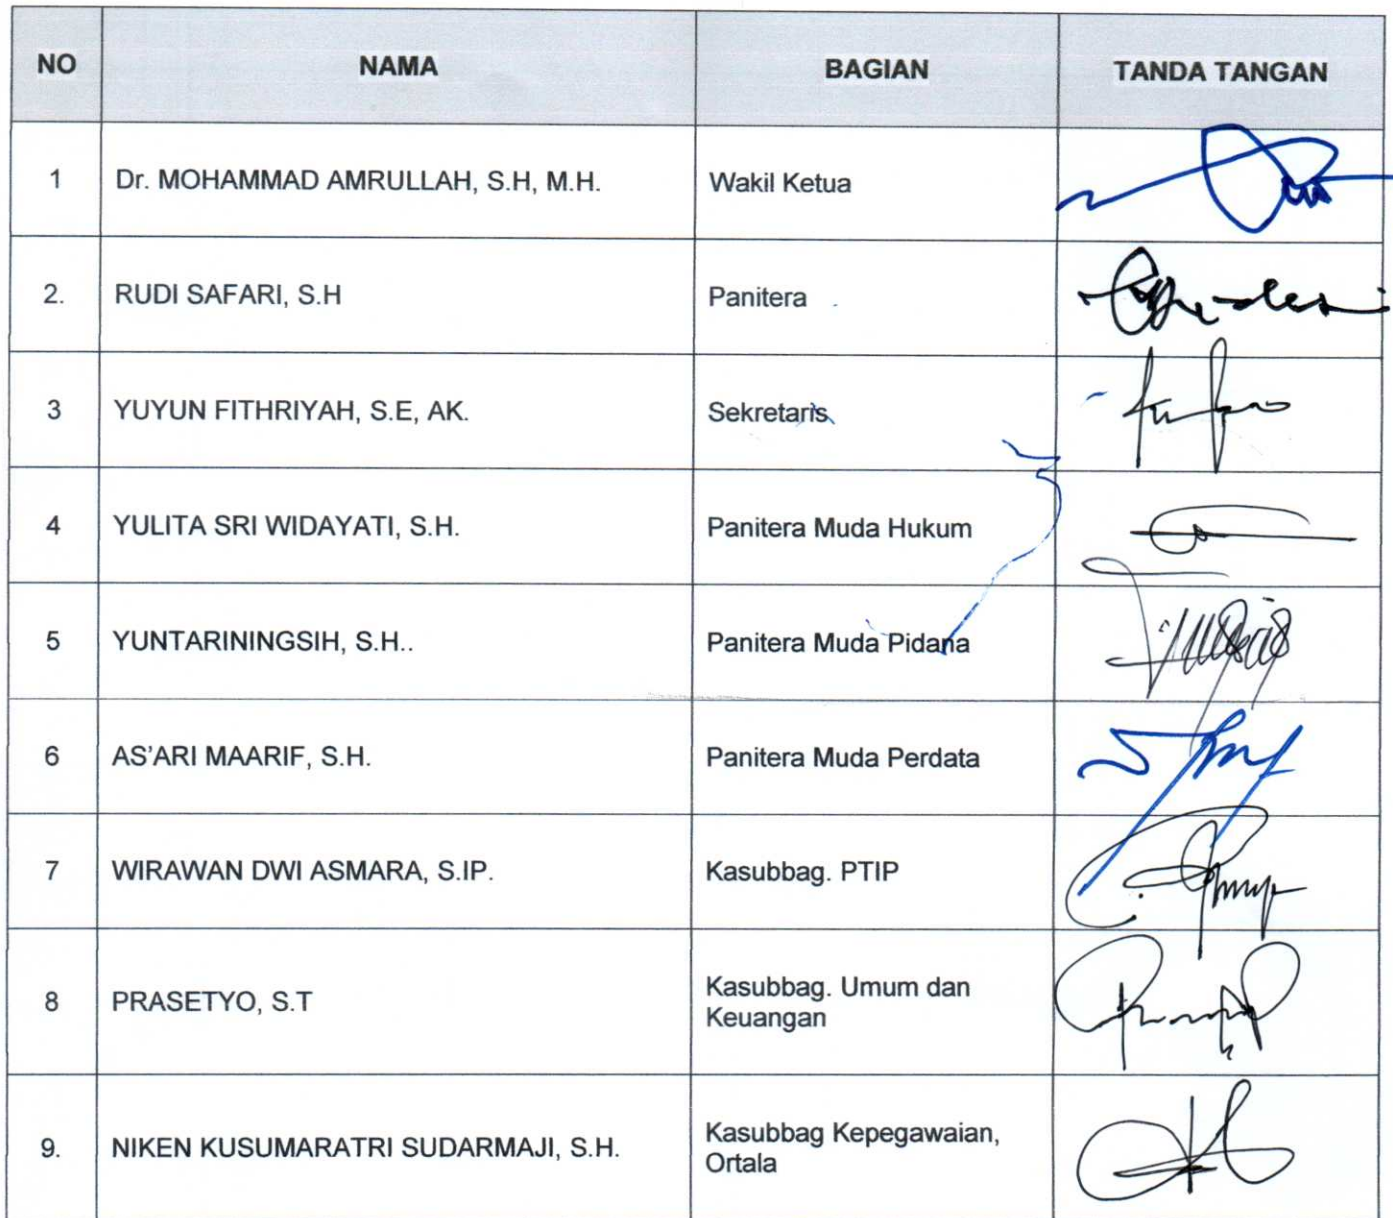 NO NAMA BAGIAN TANDA TANGAN
1 Dr. MOHAMMAD AMRULLAH, S.H, M.H. Wakil Ketua
2. RUDI SAFARI, S.H Panitera
3 YUYUN FITHRIYAH, S.E, AK. Sekretaris
4 YULITA SRI WIDAYATI, S.H. Panitera Muda Hukum
5 YUNTARININGSIH, S.H.. Panitera Muda Pidana
6 AS'ARI MAARIF, S.H. Panitera Muda Perdata
7 WIRAWAN DWI ASMARA, S.IP. Kasubbag. PTIP
8 PRASETYO, S.T Kasubbag. Umum dan
Keuangan
9. NIKEN KUSUMARATRI SUDARMAJI, S.H. Kasubbag Kepegawaian,
Ortala